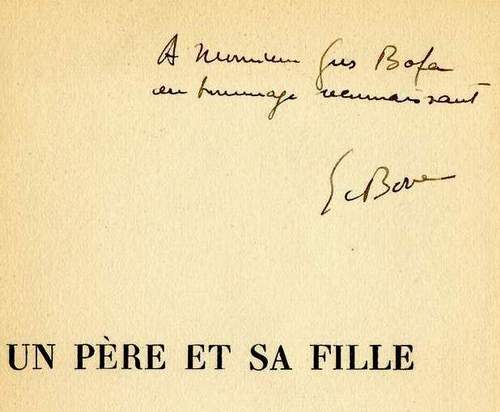 A Monsieur Gus Bofa
en hommage reconnaissant
E. Bove
UN PÈRE ET SA FILLE